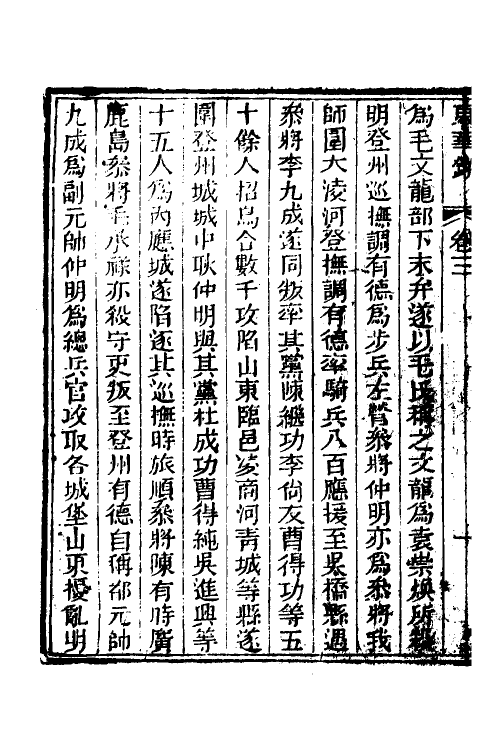 東華錄 卷三
爲毛文龍部下末弁遂以毛氏稱之文龍爲袁崇煥所殺
明登州巡撫調有德爲步兵左營叅將仲明亦爲叅將我
師圍大淩河登撫調有德率騎兵八百應援至吳橋縣遇
叅將李九成遂同叛率其黨陳繼功李尙友曹得功等五
十餘人招烏合數千攻陷山東臨邑淩商河靑城等縣遂
圍登州城城中耿仲明與其黨杜成功曹得純吳進興等
十五人爲內應城遂陷逐其巡撫時旅順叅將陳有時廣
鹿島叅將毛承祿亦殺守吏叛至登州有德自稱都元帥
九成爲副元帥仲明爲總兵官攻取各城堡山東擾亂明